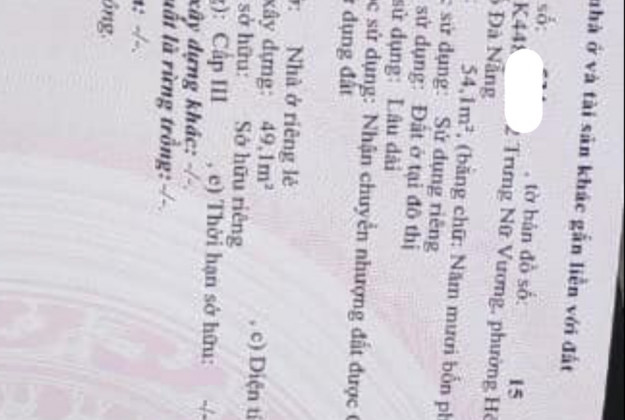 nhà ở và tài sản khác gắn liền với đất
số: , tờ bản đồ số: 15
K44 2 Trưng Nữ Vương, phường
Đà Nẵng
54,1m², (bằng chữ: Năm mươi bốn
sử dụng: Sử dụng riêng
sử dụng: Đất ở tại đô thị
sử dụng: Lâu dài
sử dụng: Nhận chuyển nhượng đất được
dụng đất
Nhà ở riêng lẻ
xây dựng: 49,1m² , c) Diện
sở hữu: Sở hữu riêng
): Cấp III , e) Thời hạn sở hữu: -/-
xây dựng khác: -/-.
là rừng trồng: -/-.
: -/-.